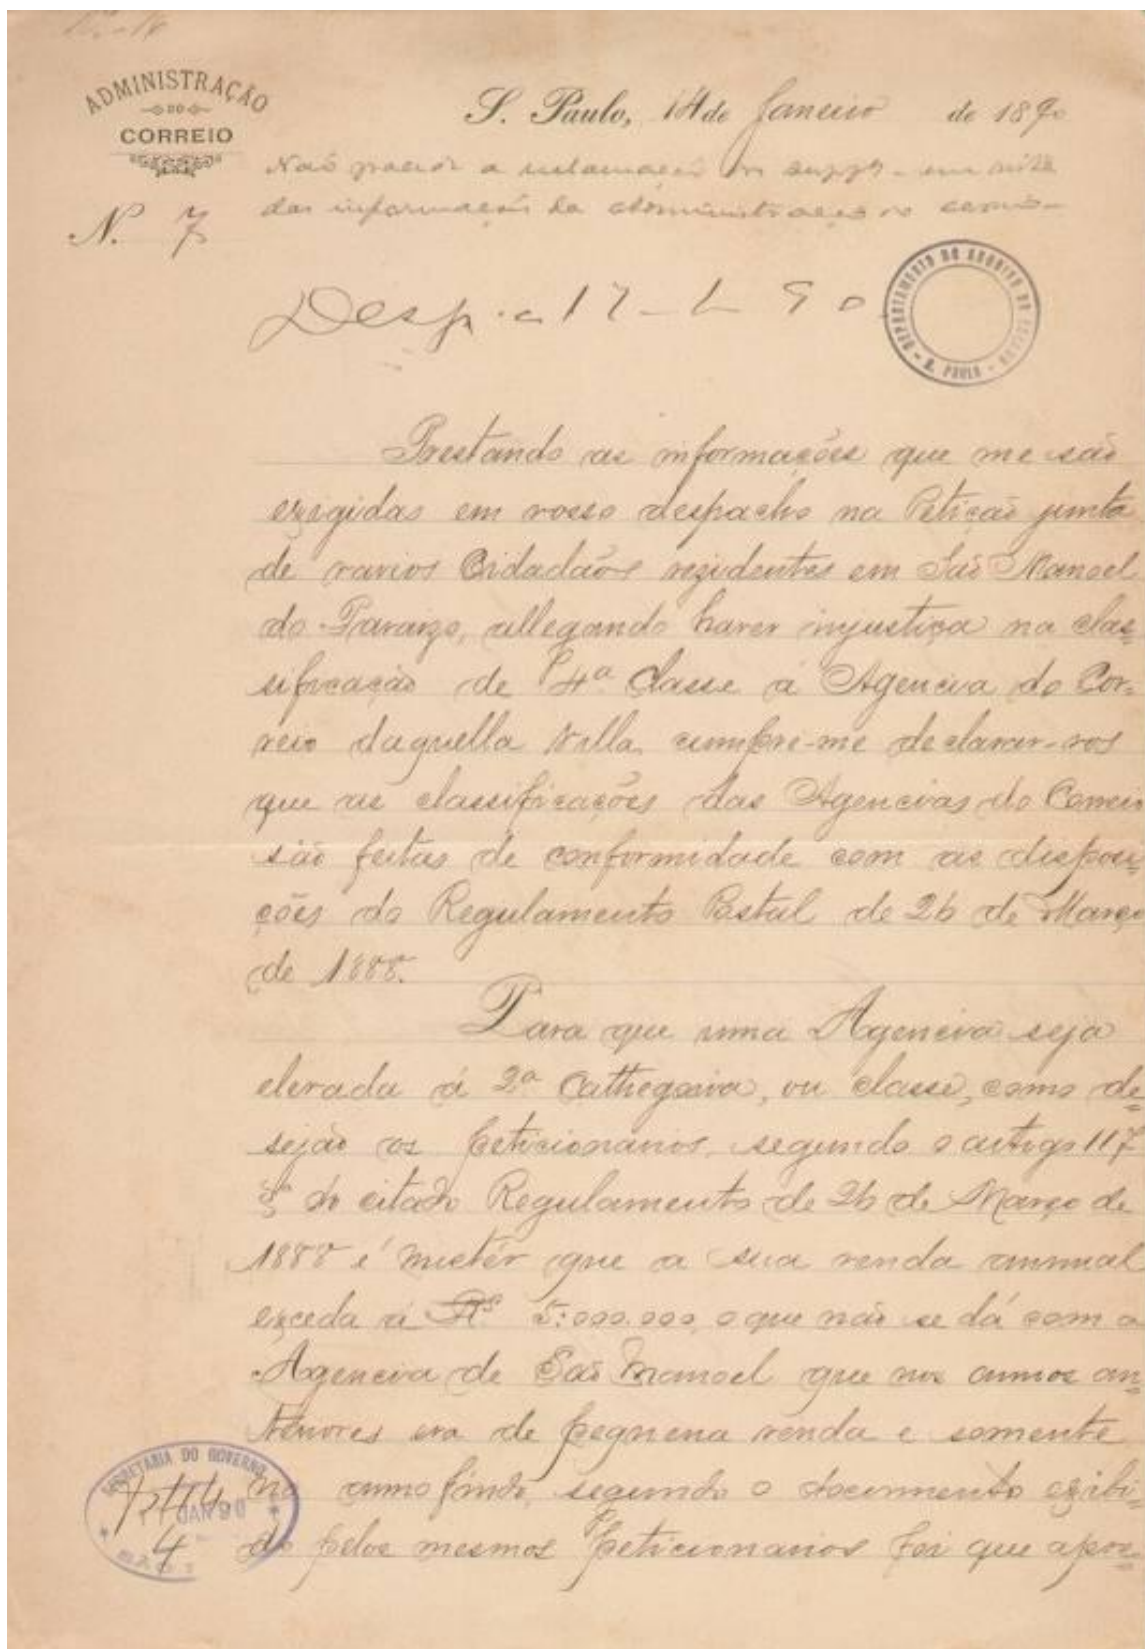 ADMINISTRAÇÃO
DO
CORREIO
S. Paulo, 14 de Janeiro de 1890
Não procede a reclamação em vista
das informações da Administração do correio
N. 7
Desp. a 17-1-90
DEPARTAMENTO DO ARCHIVO DO ESTADO
S. PAULO
Prestando as informações que me são
exigidas em vosso despacho na Petição junta
de varios Cidadãos rezidentes em São Manoel
do Paraizo, allegando haver injustiça na clas=
sificação de 4ª Classe á Agencia do Cor-
reio daquella Villa, cumpre-me declarar-vos
que as classificações das Agencias do Correio
são feitas de conformidade com as disposi-
ções do Regulamento Postal de 26 de Março
de 1888.
Para que uma Agencia seja
elevada á 2ª Cathegoria, ou classe, como de=
sejão os peticionarios, segundo o artigo 117
§ do citado Regulamento de 26 de Março de
1888 é mister que a sua renda annual
exceda á Rs 5:000.000, o que não se dá com a
Agencia de São Manoel que nos annos an=
teriores era de pequena renda e somente
no anno findo, segundo o documento exibi-
do pelos mesmos Peticionarios foi que apre=
SECRETARIA DO GOVERNO
JAN 90
4